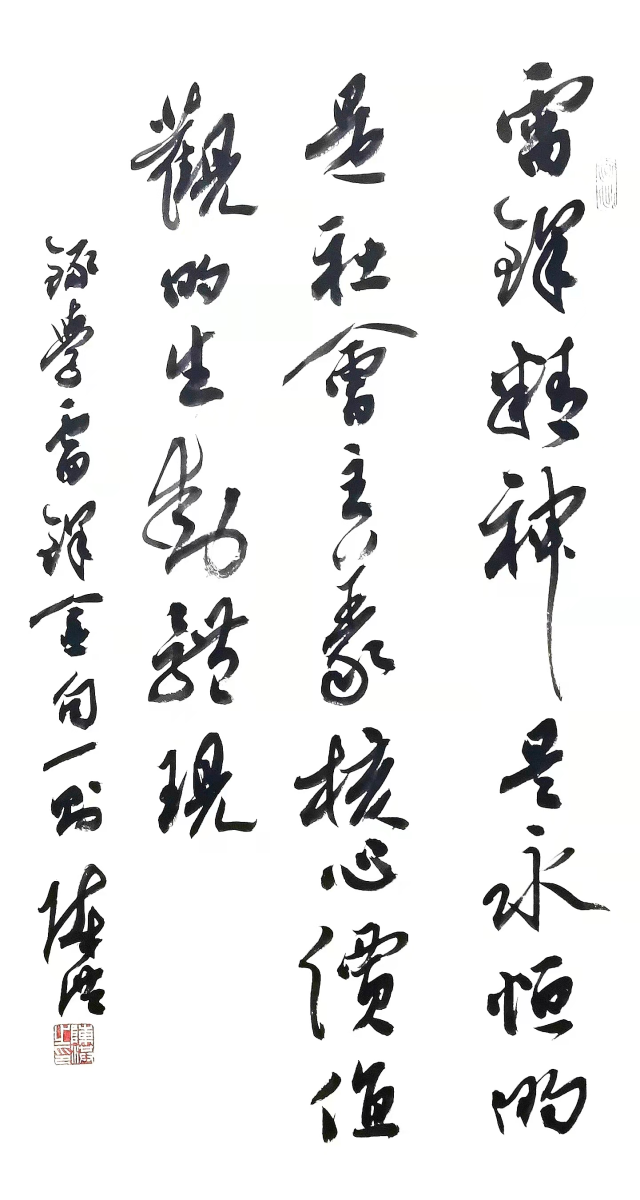 雷鋒精神是永恒的
是社會主義核心價值
觀的生動體現
錄學雷鋒金句一則 陳浩
陳浩之印